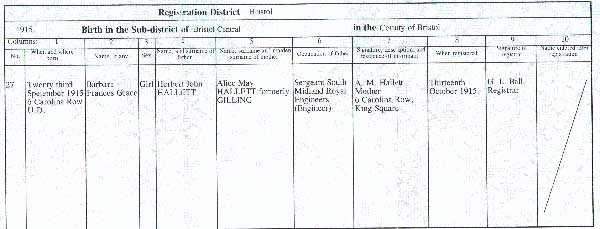 Registration District Bristol
1915. Birth in the Sub-district of Bristol Central in the County of Bristol
Columns: 1 2 3 4 5 6 7 8 9 10
No. When and where born Name, if any Sex Name, and surname of father Name, surname and maiden surname of mother Occupation of father Signature, description, and residence of informant When registered Signature of registrar Name entered after registration
27 Twenty third Barbara Girl Herbert John Alice May Sergeant South A. M. Hallett Thirteenth G. L. Ball
September 1915 Frances Grace HALLETT HALLETT formerly Midland Royal Mother October 1915 Registrar
6 Carolina Row GILLING Engineers 6 Carolina Row,
U.D. (Engineer) King Square